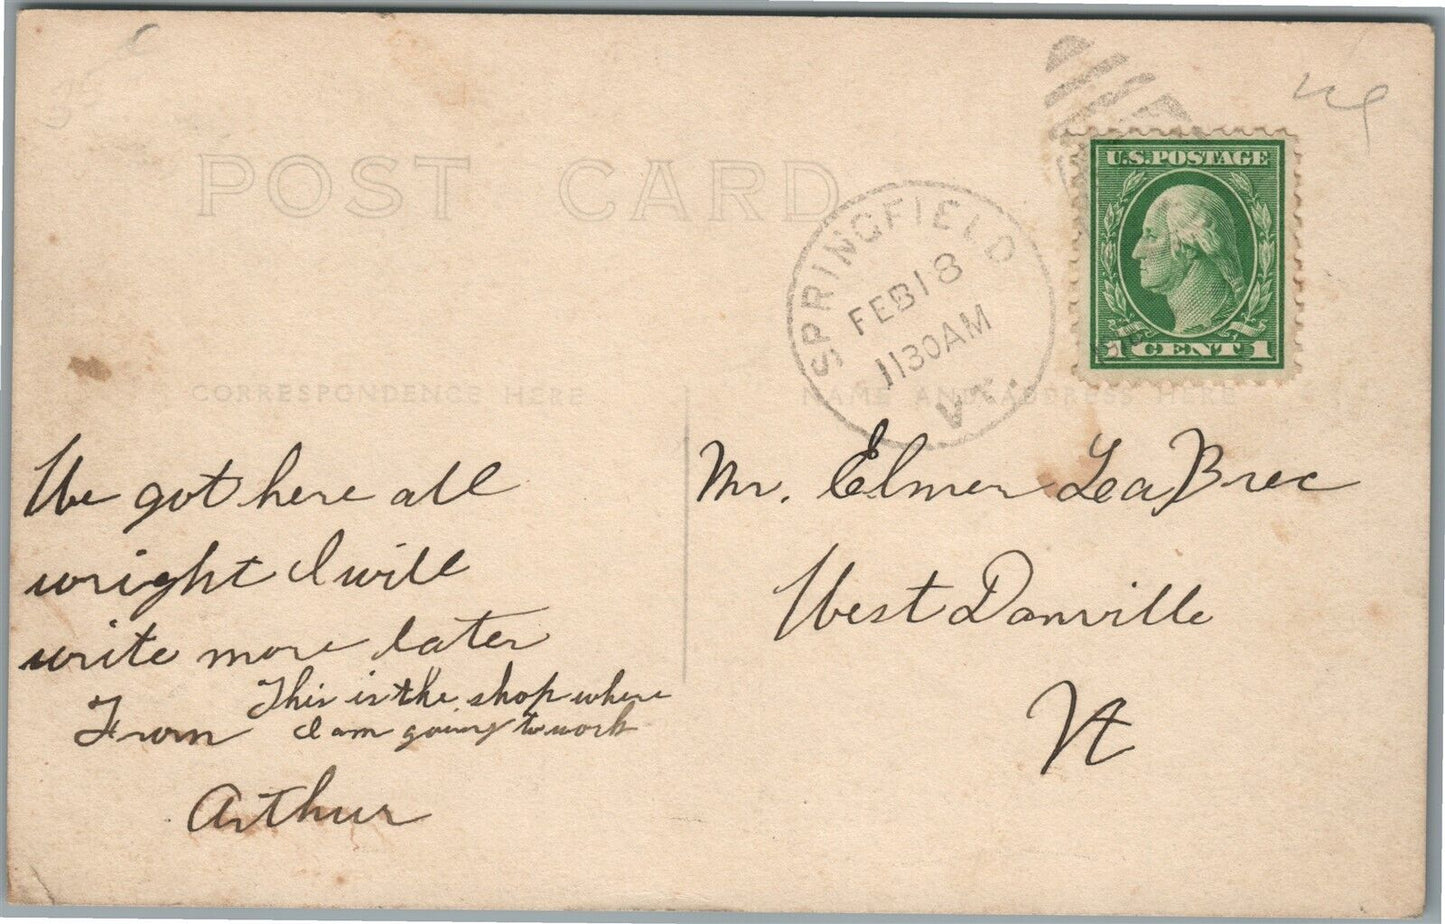 POST CARD
U.S. POSTAGE
1 CENT 1
SPRINGFIELD
FEB 18
1130AM
VT.
CORRESPONDENCE HERE
NAME AND ADDRESS HERE
We got here all
wright I will
write more later
From
This is the shop where
I am going to work
Arthur
Mr. Elmer LeaBrec
West Danville
Vt